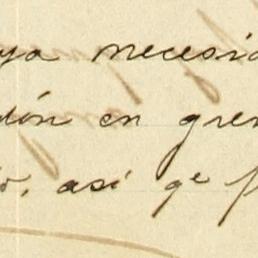 ya necesid
dón en gre
o, así qe p